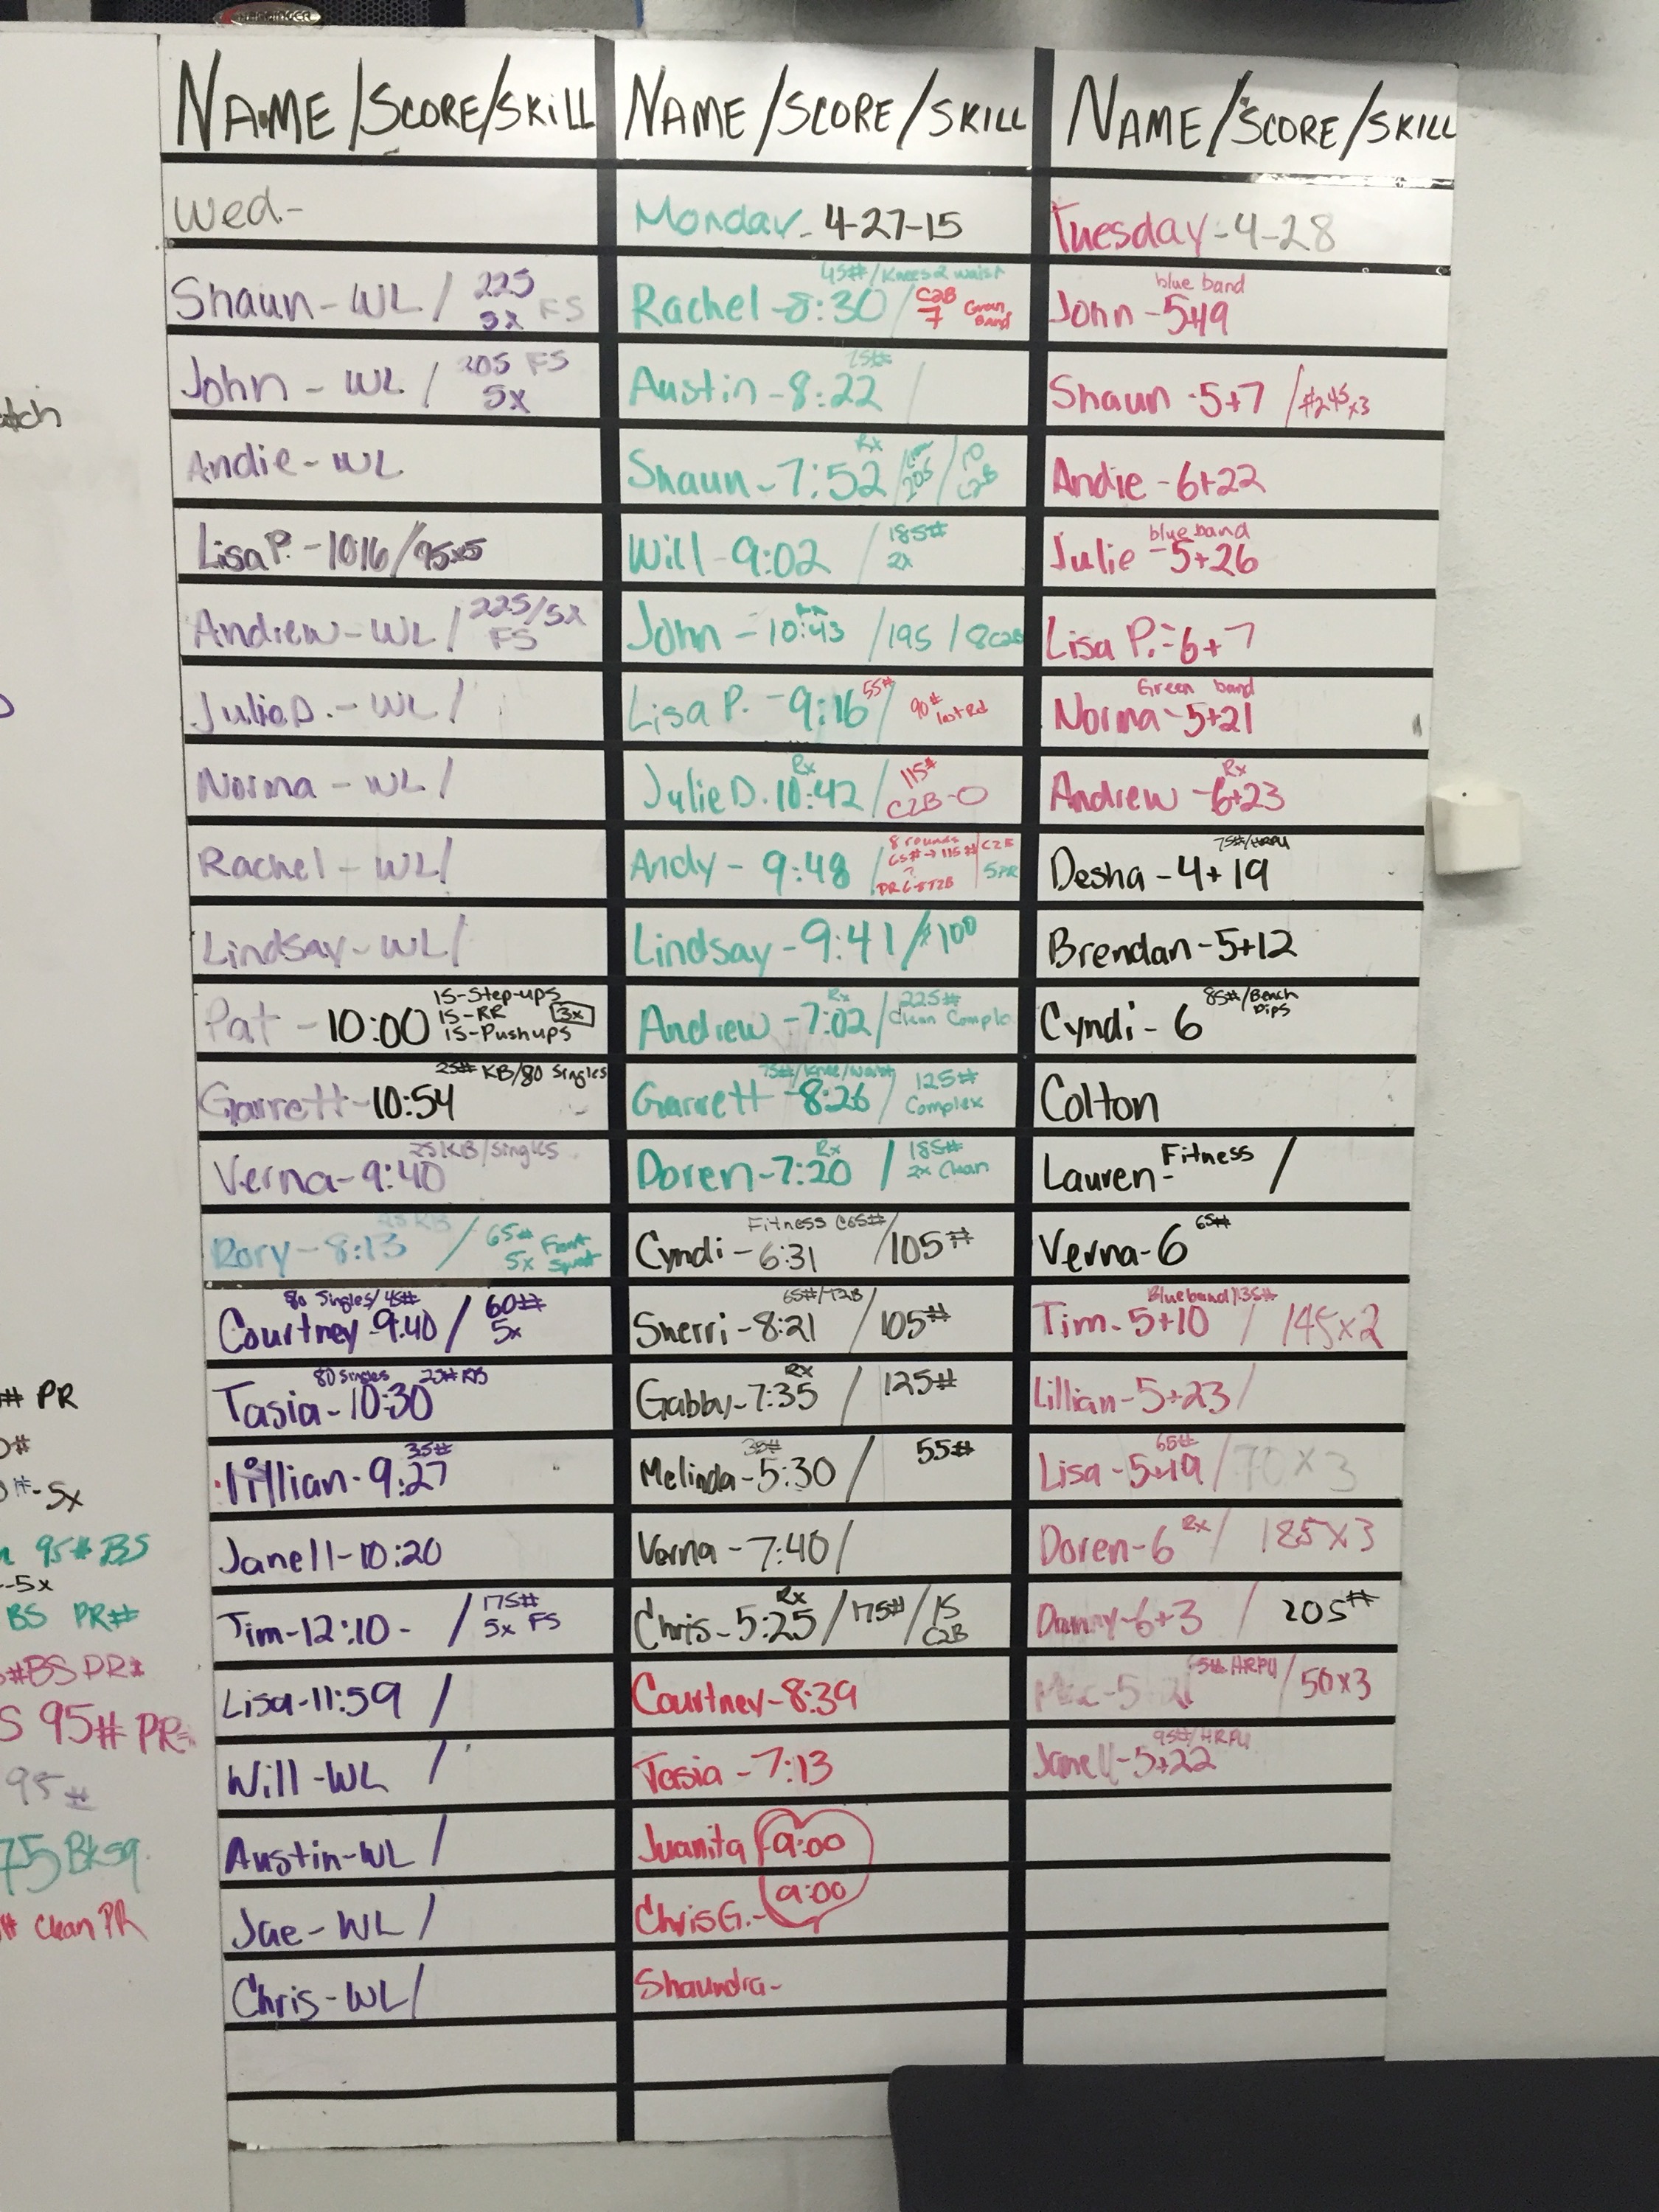 NAME/SCORE/SKILL
Wed-
Shaun-WL / 225 FS
5x
John - WL / 205 FS
5x
Andie-WL
Lisa P. -10:16/95x5
Andrew-WL / 225/5x
FS
Julie D. - WL/
Norma - WL/
Rachel - WL/
Lindsay-WL/
Pat - 10:00 15-Step-ups
15-RR 3x
15-Pushups
25# KB/80 Singles
Garrett-10:54
25KB/singles
Verna-9:40
25KB
Rory-8:13 / 65# Front
5x Squat
80 Singles/45#
Courtney-9:40 / 60#
5x
80 Singles 25# KB
Tasia-10:30
35#
Lillian-9:27
Janell-10:20
Tim-12:10- / 175#
5x FS
Lisa-11:59 /
Will-WL /
Austin-WL /
Jae-WL /
Chris-WL/
NAME/SCORE/SKILL
Monday- 4-27-15
45#/Knees2waist
Rachel-8:30 / C2B
7 Green Band
75#
Austin-8:22 /
Rx
Shaun-7:52 / 205 / 10
C2B
Will-9:02 / 185#
2x
John-10:43 /195 /8C2B
Lisa P. -9:16 55# / 90#
last Rd
Rx
Julie D. 10:42 / 115#
C2B-0
Andy-9:48 / 8 rounds
65#→115# C2B
5PR
Lindsay-9:41/#100
Rx
Andrew-7:02/ 225#
Clean Complex
75#/Knee/Waist
Garrett-8:26/ 125#
Complex
Rx
Doren-7:20 / 185#
2x Clean
Fitness C65#
Cyndi-6:31 /105#
65#/T2B
Sherri-8:21 /105#
Rx
Gabby-7:35 / 125#
35#
Melinda-5:30 / 55#
Verna-7:40/
Rx
Chris-5:25/175#/15
C2B
Courtney-8:39
Tasia-7:13
Juanita 9:00
Chris G.- 9:00
Shaundra-
NAME/SCORE/SKILL
Tuesday-4-28
blue band
John-5+19
Shaun-5+7 /#245x3
Andie-6+22
blue band
Julie-5+26
Lisa P.-6+7
Green band
Norma-5+21
Rx
Andrew-6+23
75#/HRPU
Desha-4+19
Brendan-5+12
85#/Bench
Dips
Cyndi-6
Colton
Lauren-Fitness /
65#
Verna-6
Blueband/135#
Tim-5+10 / 145x2
Lillian-5+23/
65#
Lisa-5+19/70x3
Rx
Doren-6 / 185x3
Danny-6+3 / 205#
HRPU /50x3
95#/HRPU
Janell-5+22
# PR
-5x
95# BS
-5x
BS PR#
#BS PR#
S 95# PR
95#
75 Bksq.
# Clean PR